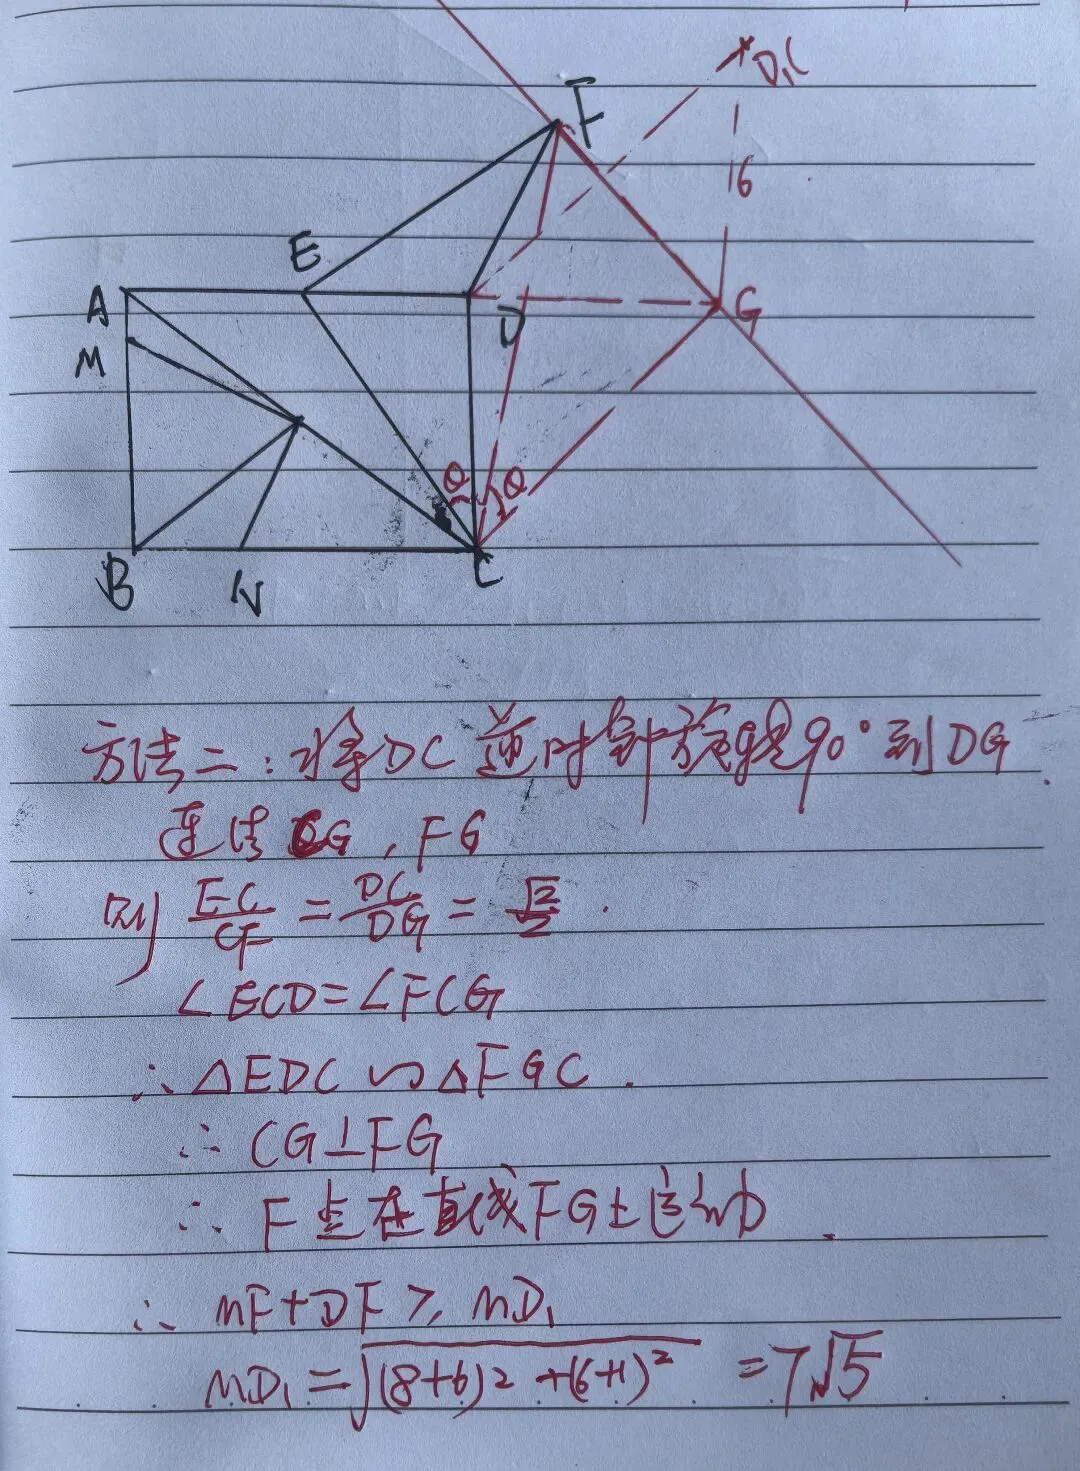 F
D₁
16
E
A
D
G
M
θ
θ
B
N
C
方法二:将DC逆时针旋转90°到DG.
连结CG,FG
则 EC/CF = DC/DG = √2/2.
∠ECD=∠FCG
∴ △EDC ∽ △FGC.
∴ CG⊥FG
∴ F点在直线FG上运动.
∴ MF+DF ≥ MD₁
MD₁ = √((8+6)2 +(6+1)²) = 7√5